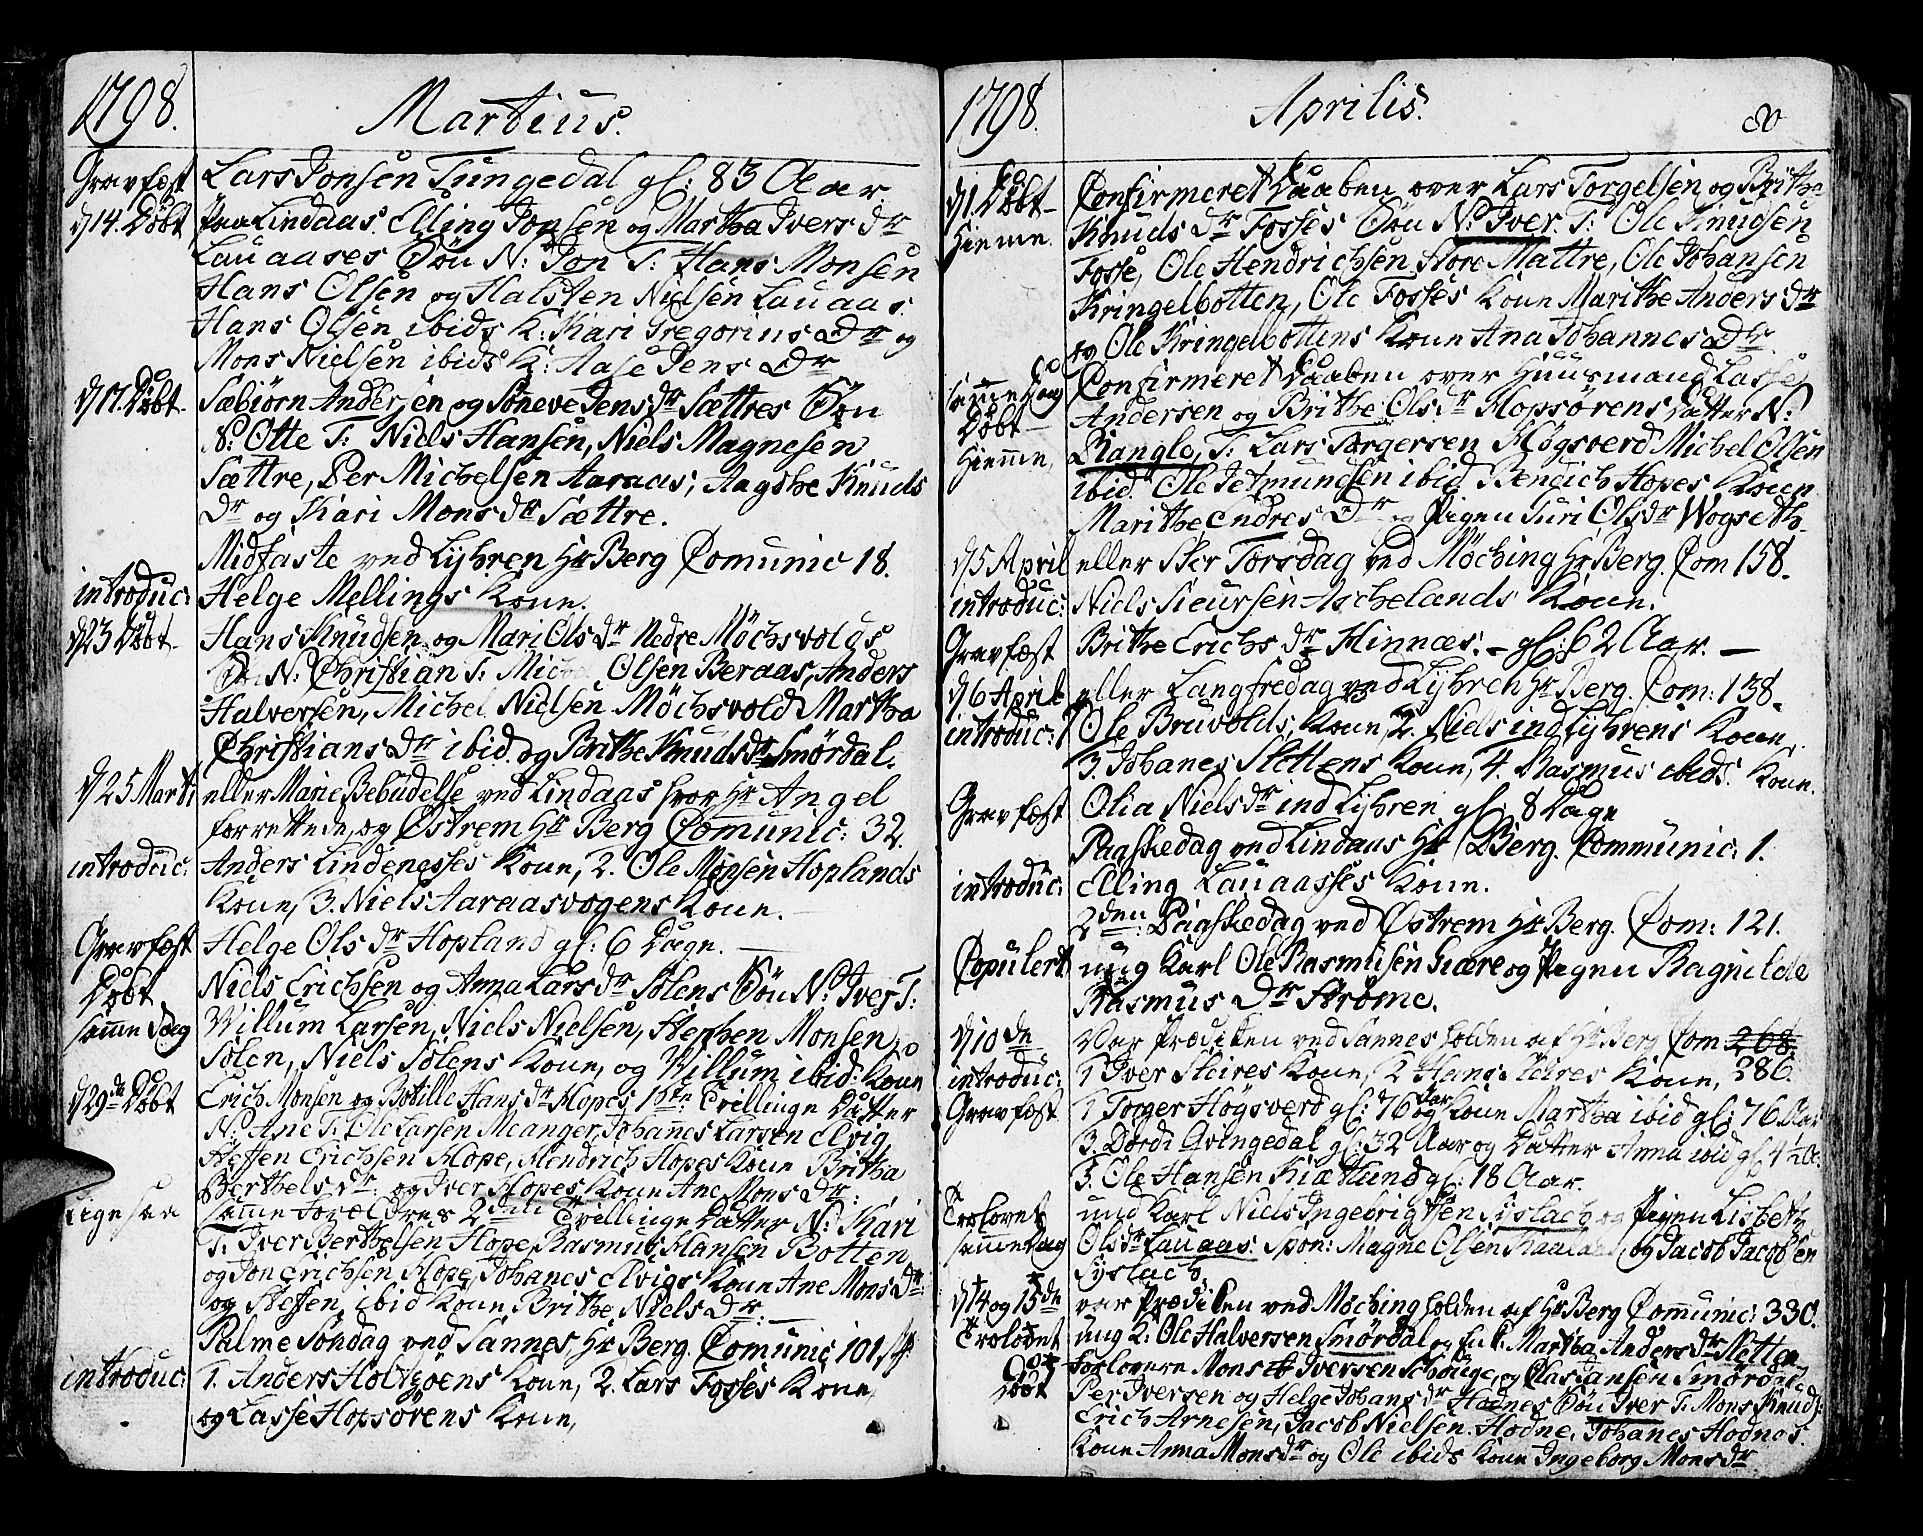 1798. Martius.
Gravfæst Lars Jonsen Tungedal gl: 83 Aar.
d 14. Døbt Paa Lindaas. Elling Jonsen og Martha Ivers dr
Lauaases Søn N: Jon T: Hans Monsen
Hans Olsen og Halsten Nielsen Lauaas.
Hans Olsen ibids K: Kari Gregorius Dr og
Mons Nielsen ibids K: Aase Jens Dr
d 17. Døbt Sæbiørn Andersen og Søneve Jens dr Sættres Søn
N: Otte T: Niels Hansen, Niels Magnesen
Sættre, Per Michelsen Aaraas, Aagthe Knuds
Dr og Kari Mons dr Sættre.
Midfaste ved Lyhren Hr Berg Comunic 18.
introduc: Helge Mellings Kone.
d 23 Døbt Hans Knudsen og Mari Ols dr Nedre Møchsvolds
Søn N: Christian T: Olsen Beraas, Anders
Halversen, Michel Nielsen Møchsvold Martha
Christians dr ibid. og Brithe Knuds dr Smørdal.
d 25 Marti eller Marie Bebudelse ved Lindaas hvor Hr Angel
forrettede, og Østrem Hr Berg Comunic: 32.
introduc: Anders Lindenesses Kone, 2. Ole Monsen Hoplands
Kone, 3. Niels Aaraasvogens Kone.
Gravfæst Helge Ols dr Hopland gl: 6 Dage.
Døbt Niels Erichsen og Anna Lars dr Solens Søn N: Iver T:
samme Dag Willum Larsen, Niels Nielsen, Stephen Monsen
Solen, Niels Solens Kone, og Willum ibid: Kone
d 29de Døbt Erich Monsen og Botille Hans dr Hopes 1ste Tvillinge Datter
N: Ane T: Ole Larsen Meanger, Johannes Larsen Elvig,
Steffen Erichsen Hope, Hendrich Hopes Kone Britha
Berthels dr: og Iver Hopes Kone Ane Mons dr:
Ligesaa samme Forældres 2den Tvillinge Datter N: Kari
T: Iver Berthelsen Hope, Rasmus Hansen Botten
og Jon Erichsen Hope, Johanes Elvigs Kone Ane Mons Dr
og Steffen ibid Kone Brithe Niels Dr:
Palme Søndag ved Sannes, Hr Berg. Comunic 101
introduc: 1. Anders Holthoens Kone, 2. Lars Fosses Kone,
og Lasse Hopsørens Kone,
1798. Aprilis. 80
d 1. Døbt Confirmeret Daaben over Lars Torgelsen og Brithe
Hieme. Knuds Dr Fosses Søn N: Iver. T: Ole Knudsen
Fosse, Ole Hendrichsen Store Mattre, Ole Johansen
Kringelbotten, Ole Fosses Kone Marithe Anders dr
og Ole Kringelbottens Kone Ana Johannes Dr.
samme Dag Confirmeret Daaben over Huusmand Lasse
Døbt Andersen og Brithe Ols dr Hopsørens Datter N:
Hieme, Ranglo, T: Lars Torgersen Høgsverd Michel Olsen
ibid. Ole Jetmundsen ibid Bendich Hopes Kone
Marithe Endres Dr og Pigen Turi Ols dr Wogseth.
d 5 April eller Skr Torsdag ved Møching Hr Berg. Com 158.
introduc: Niels Sieursen Aschelands Kone.
Gravfæst Brithe Erichs dr Hinnæs. - gl: 62 Aar. -
d 6 April eller Langfredag ved Lyhren Hr Berg. Com: 138.
introduc: 1 Ole Bruvolds Kone, 2. Niels indLyhrens Kone,
3. Johanes Slettens Kone, 4. Rasmus ibids. Kone.
Gravfæst Olia Niels dr indLyhren gl: 8 Dage
Paaskedag ved Lindaas Hr Berg. Communic: 1.
introduc: Elling Lauaasses Kone.
2den: Paaskedag ved Østrem Hr Berg. Com: 121.
Copulert ung Karl Ole Rasmusen Giære og Pigen Ragnilde
Rasmus Dr Strøme.
d 10de Var Prædiken ved Sannes holden af Hr Berg Com 268
introduc: 1 Iver Steires Kone, 2 Hans Steires Kone, 286.
Gravfæst 1 Torger Høgsverd gl: 76 Aar og Kone Martha ibid gl: 76 Aar
3. Dordi Qvingedal gl: 32 Aar og Datter Anna ibid gl: 4 1/2 A:
5. Ole Hansen Kietlund gl: 18 Aar.
Trolovet ung Karl Niels Ingebrigtsen Syslach og Pigen Lisbeth
samme Dag Ols dr Lauaas. Spon: Magne Olsen og Jacob Jacobsen
Syslach.
d 14 og 15de var Prædiken ved Møching holden af Hr Berg Comunic: 330.
Trolovet ung K: Ole Halversen Smørdal og Enk. Martha Anders dr Netten
forlovere Mons Iversen og Clas Jansen Smørdal
Døbt Per Iversen og Helge Johans dr Hodnes Søn Iver T: Mons Knuds:
Erich Arnesen, Jacob Nielsen Hodne, Johanes Hodnes
Kone Anna Mons dr og Ole ibids Kone Ingeborg Mons dr